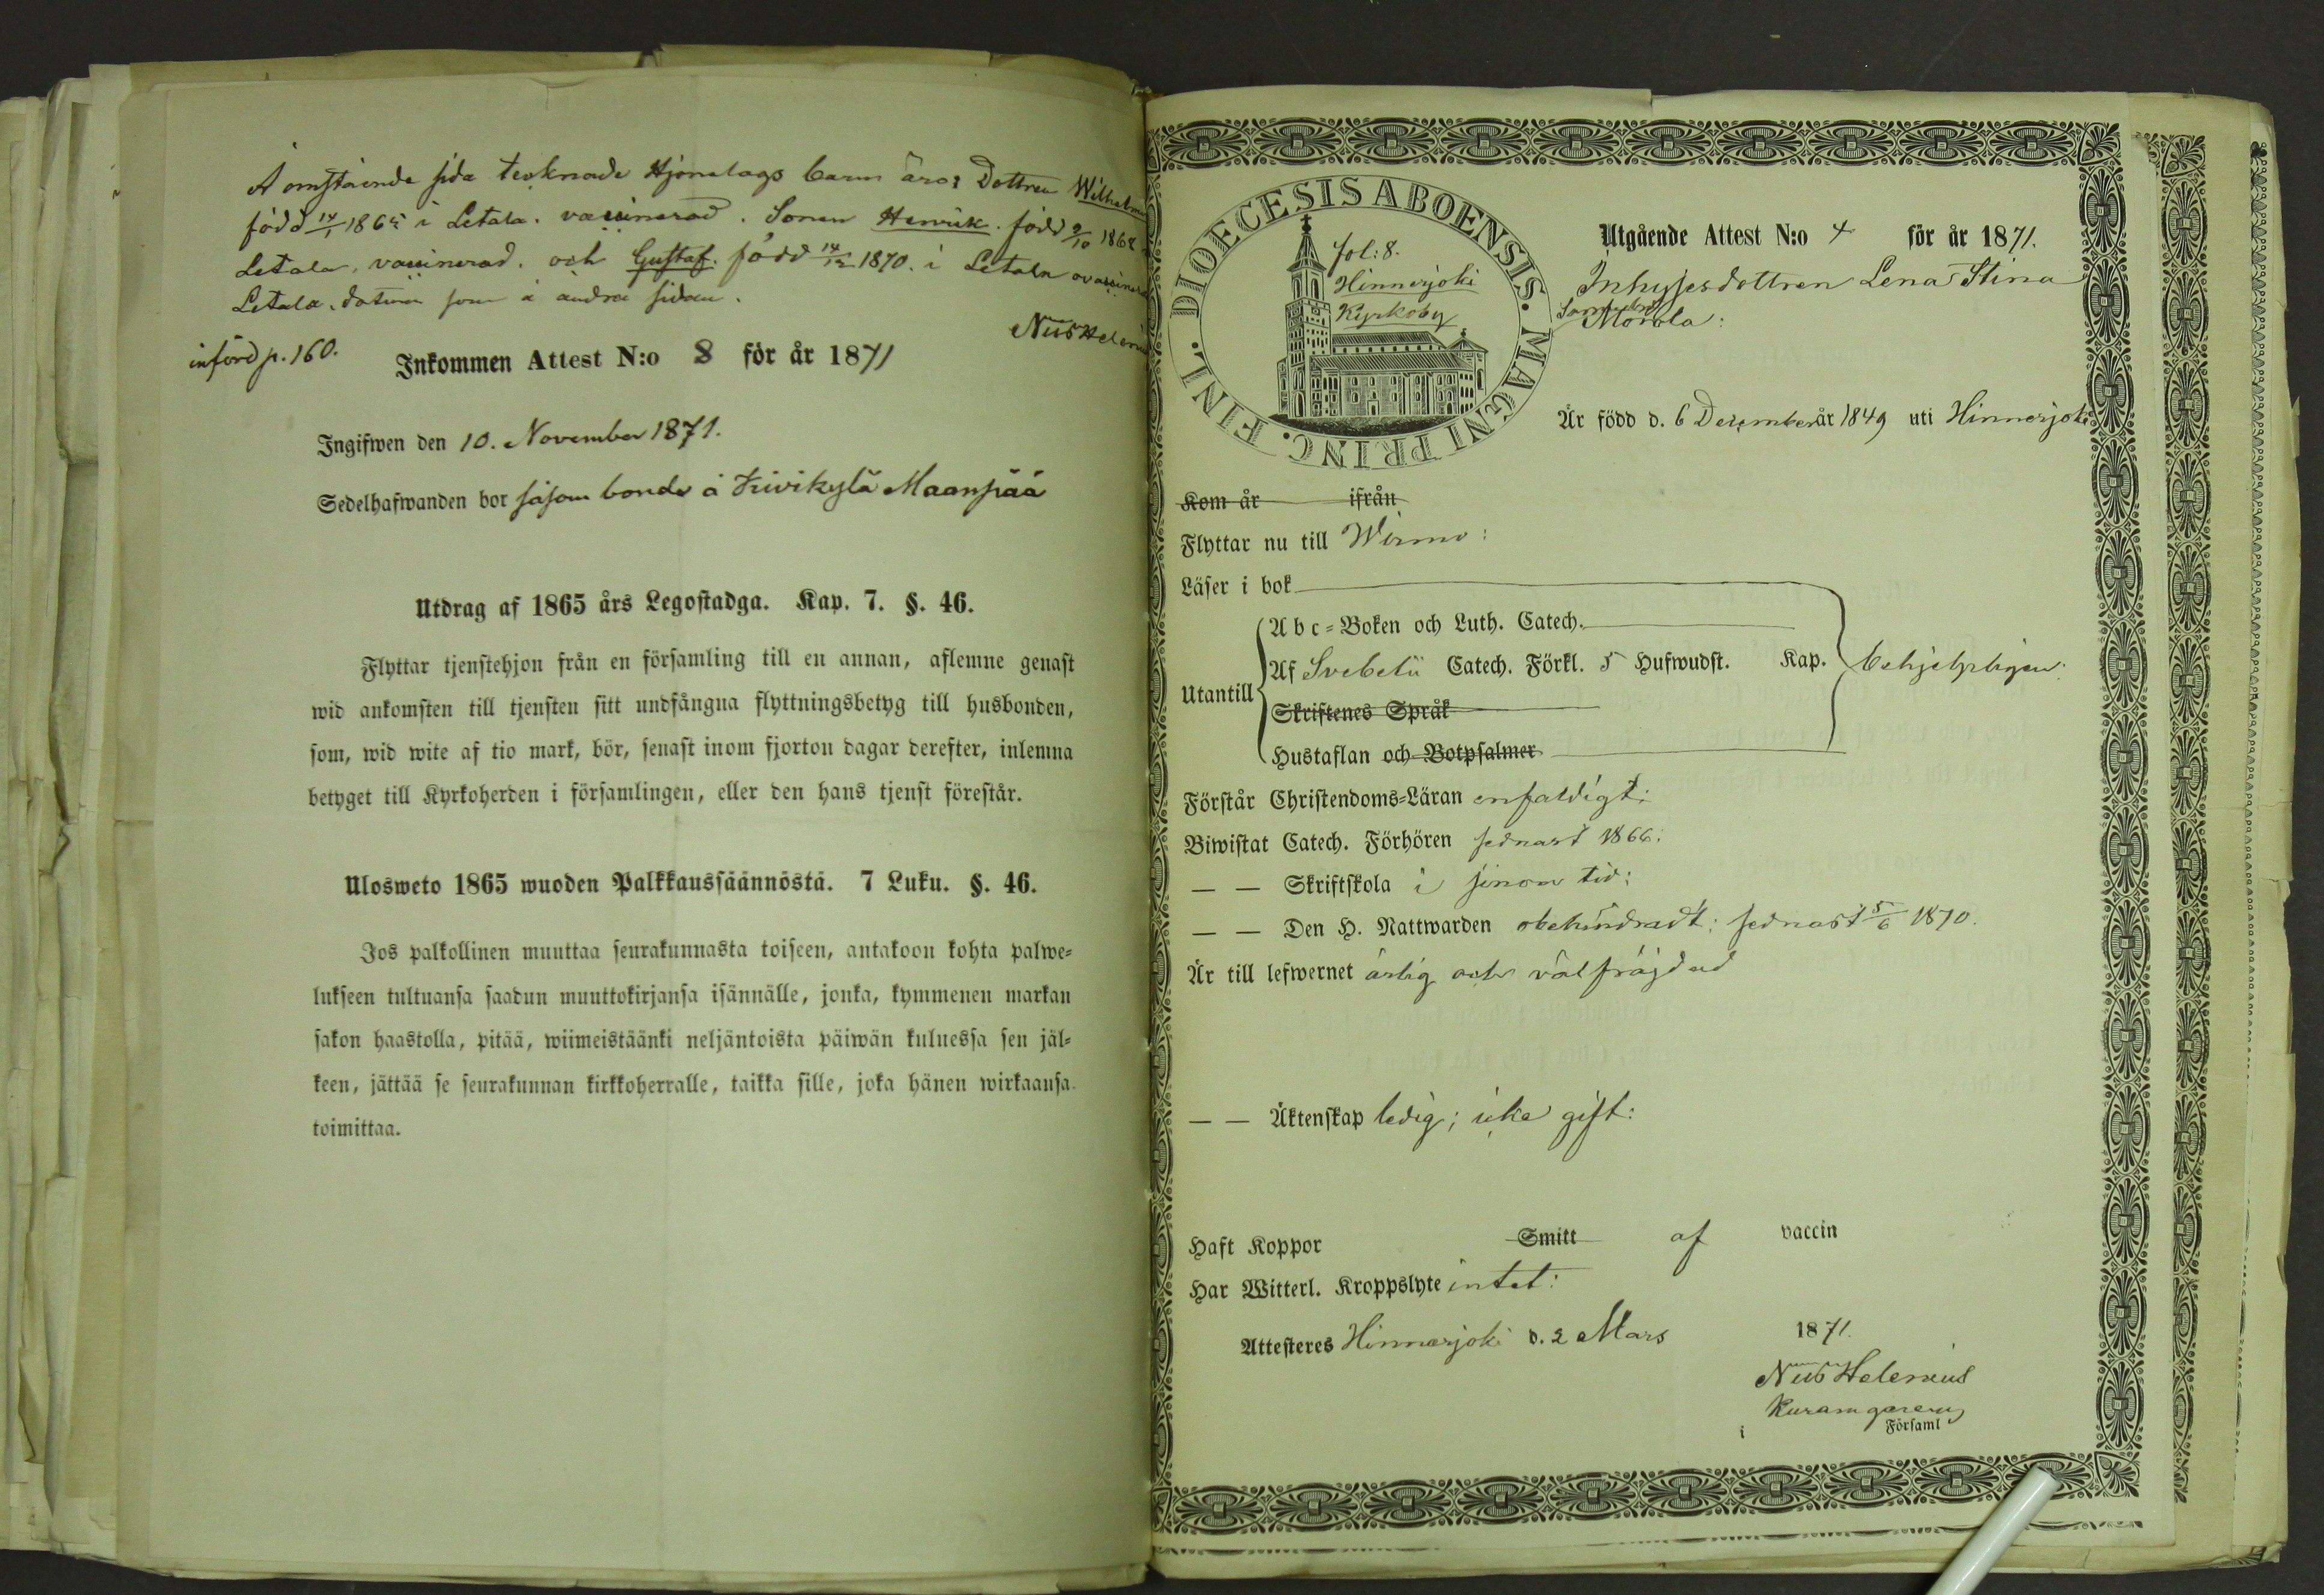 Å omstående sida tecknade Hjonelags barn äro: Dottren Wilhelmina
född 14/1 1865 i Letala. vaccinerad. Sonen Henrik. född 9/10 1868
Letala, vaccinerad. och Gustaf. född 14/12 1870. i Letala ovaccinerad
Letala. datum som å andra sidan.
Nils Helenius
införd p. 160.
Inkommen Attest N:o 8 för år 1871
Ingifwen den 10. November 1871.
Sedelhafwanden bor såsom bonde å Kivikylä Maanpää
Utdrag af 1865 års Legostadga. Kap. 7. §. 46.
Flyttar tjenstehjon från en församling till en annan, aflemne genast
wid ankomsten till tjensten sitt undfångna flyttningsbetyg till husbonden,
som, wid wite af tio mark, bör, senast inom fjorton dagar derefter, inlemna
betyget till Kyrkoherden i församlingen, eller den hans tjenst förestår.
Ulosweto 1865 wuoden Palkkaussäännöstä. 7 Luku. §. 46.
Jos palkollinen muuttaa seurakunnasta toiseen, antakoon kohta palwe-
lukseen tultuansa saadun muuttokirjansa isännälle, jonka, kymmenen markan
sakon haastolla, pitää, wiimeistäänki neljäntoista päiwän kuluessa sen jäl-
keen, jättää se seurakunnan kirkkoherralle, taikka sille, joka hänen wirkaansa
toimittaa.
DIOECESIS ABOENSIS. MAGNI PRINC. FINL.
fol: 8.
Hinnerjoki
Kyrkoby
Utgående Attest N:o 4 för år 1871.
Inhysesdottren Lena Stina
Morola:
Är född d. 6 December år 1849 uti Hinnerjoki
Kom år ifrån
Flyttar nu till Wirmo:
Läser i bok
Utantill
A b c-Boken och Luth. Catech.
Af Svebelii Catech. Förkl. 5 Hufwudst. Kap. behjelpligen:
Skriftenes Språk
Hustaflan och Botpsalmer
Förstår Christendoms-Läran enfaldigt:
Biwistat Catech. Förhören sednast 1866:
— — Skriftskola i sinom tid:
— — Den H. Nattwarden obehindradt: sednast 5/6 1870.
Är till lefwernet ärlig och välfräjdad
— — Äktenskap ledig; icke gift:
Haft Koppor Smitt af vaccin
Har Witterl. Kroppslyte intet:
Attesteres Hinnerjoki d. 2 Mars 1871.
Nils Helenius
i Församl